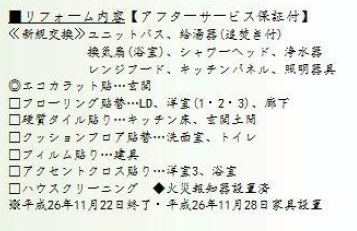 ■リフォーム内容【アフターサービス保証付】
≪新規交換≫ユニットバス、給湯器(追焚き付)
換気扇(浴室)、シャワーヘッド、浄水器
レンジフード、キッチンパネル、照明器具
◎エコカラット貼…玄関
□フローリング貼替…LD、洋室(1・2・3)、廊下
□硬質タイル貼り…キッチン床、玄関土間
□クッションフロア貼替…洗面室、トイレ
□フィルム貼り…建具
□アクセントクロス貼り…洋室3、浴室
□ハウスクリーニング ◆火災報知器設置済
※平成26年11月22日終了・平成26年11月28日家具設置